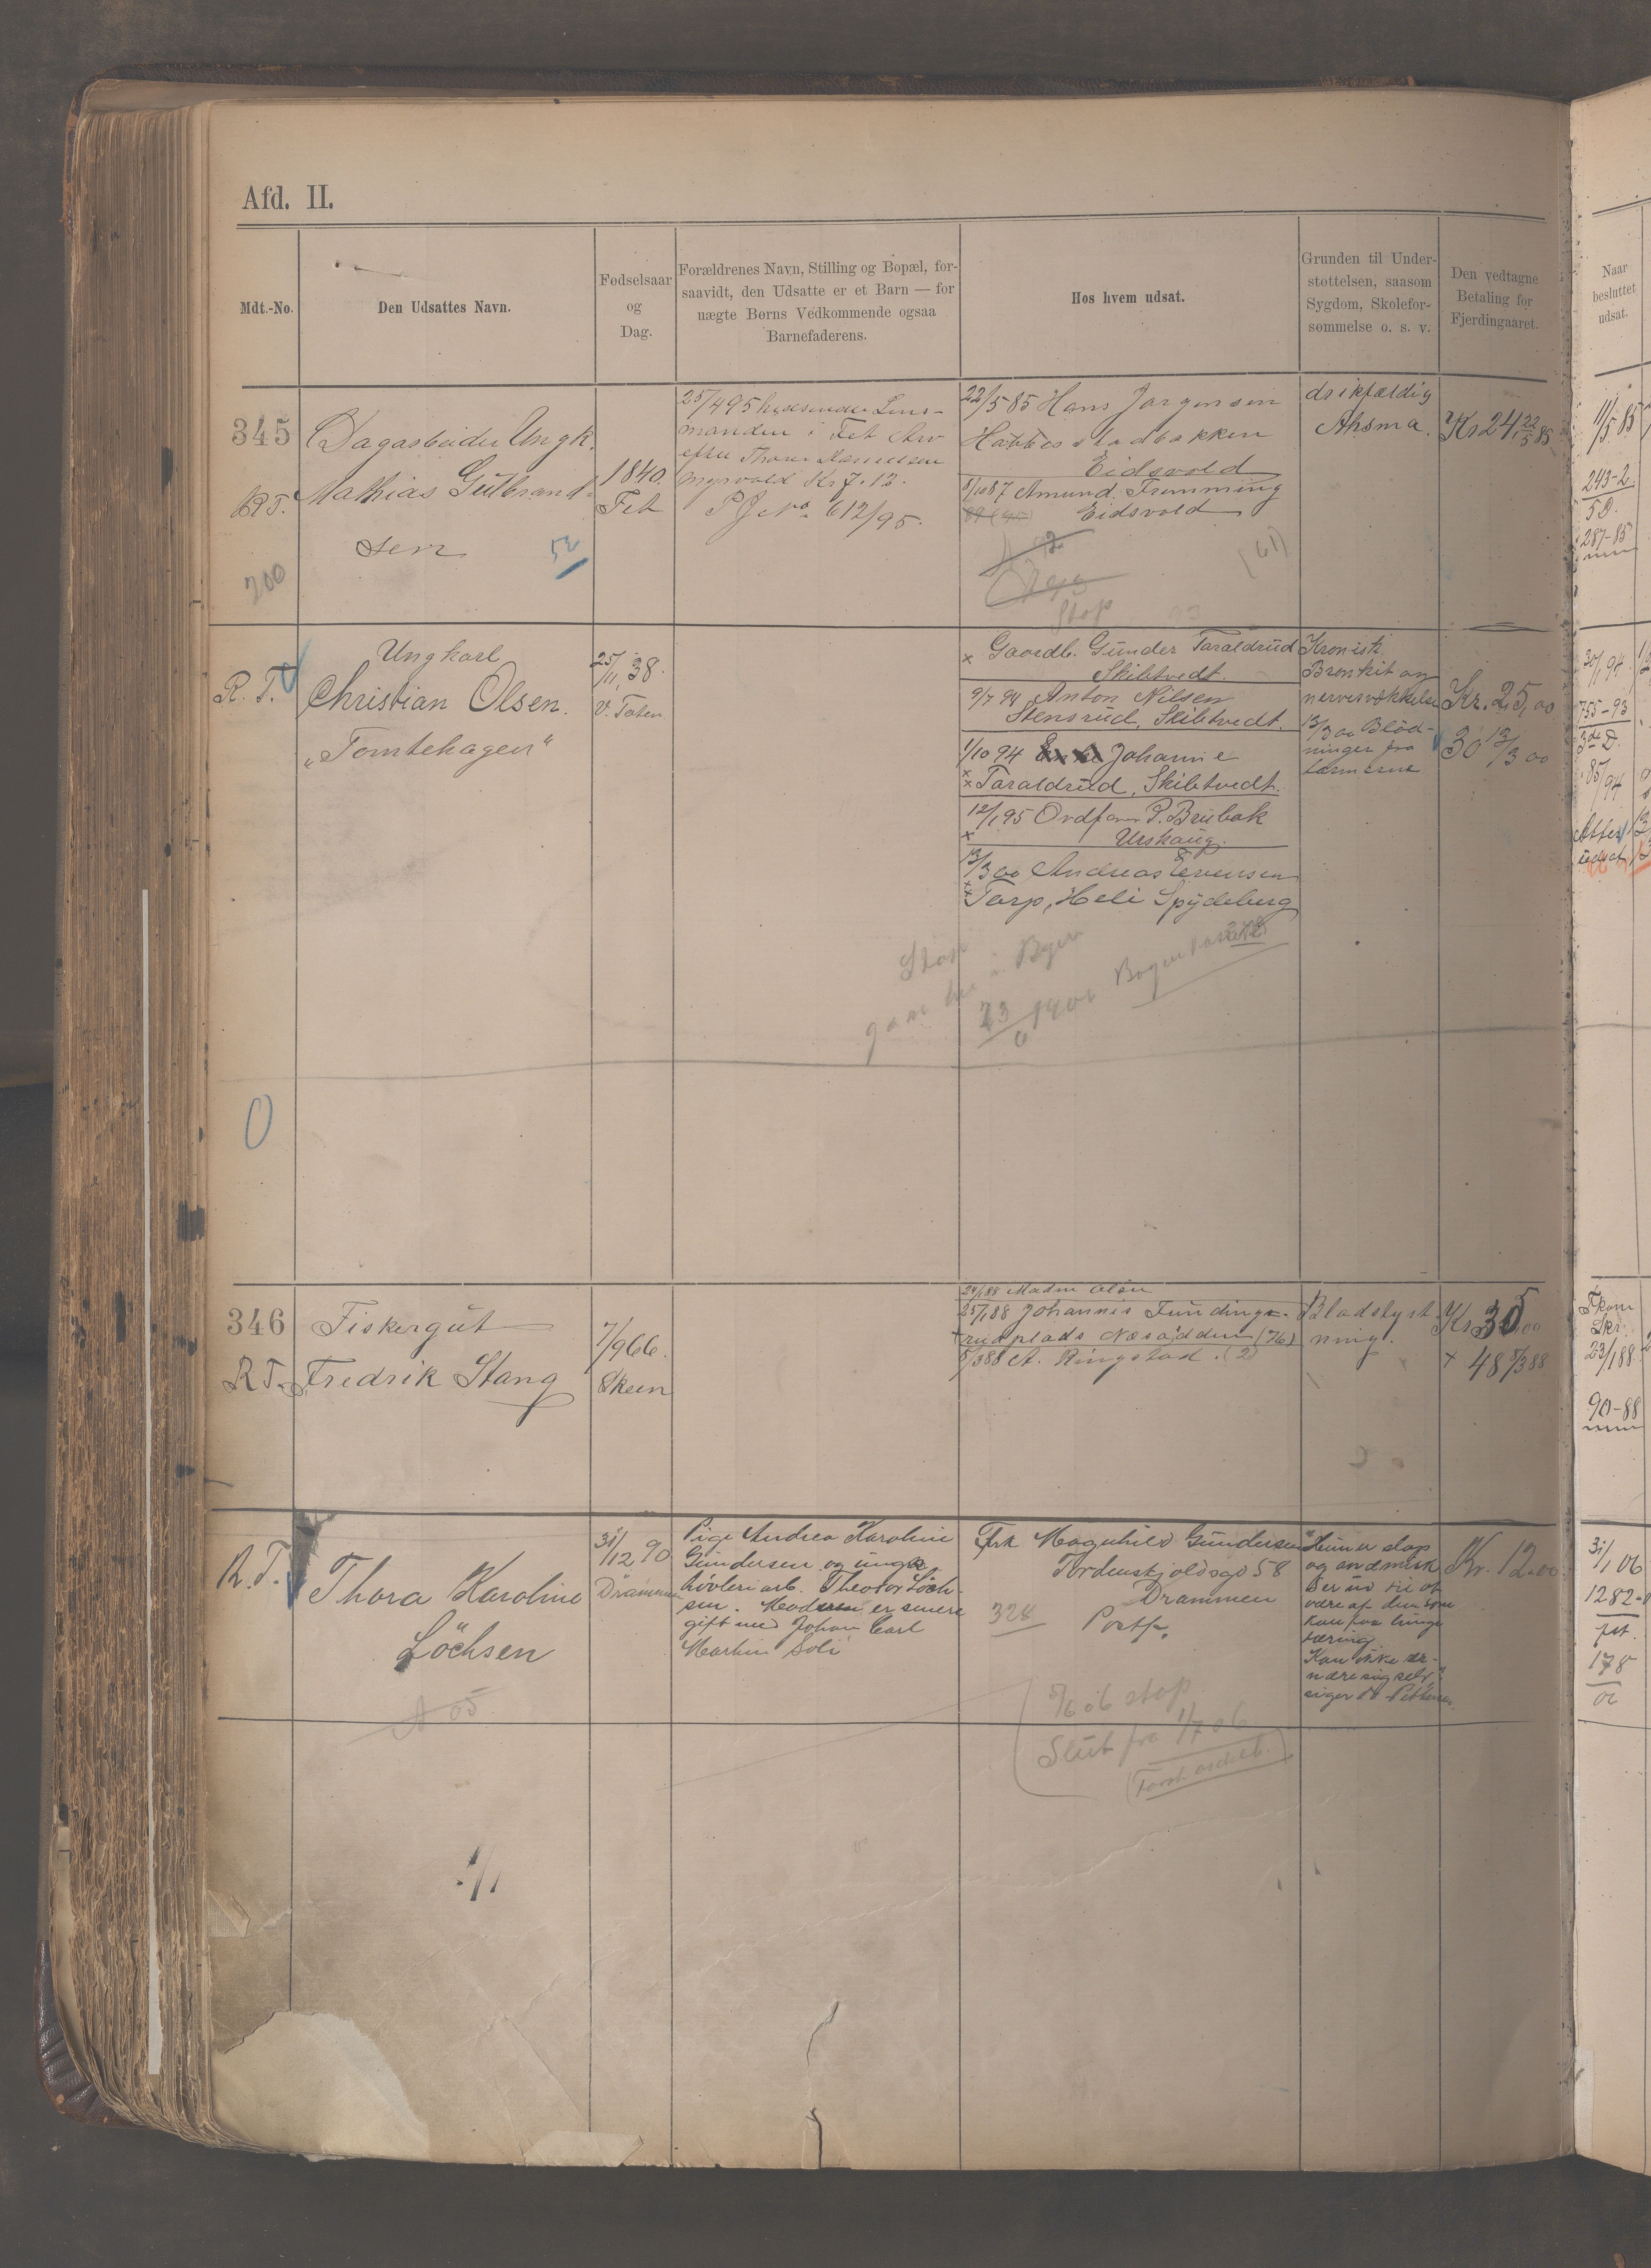 Afd. II.
Mdt.-No.
Den Udsattes Navn.
Fødselsaar
og
Dag.
Forældrenes Navn, Stilling og Bopæl, for-
saavidt, den Udsatte er et Barn — for
uægte Børns Vedkommende ogsaa
Barnefaderens.
Hos hvem udsat.
Grunden til Under-
støttelsen, saasom
Sygdom, Skolefor-
sømmelse o. s. v.
Den vedtagne
Betaling for
Fjerdingaaret.
Naar
besluttet
udsat.
345
R. T.
700
Dagarbeider Ungk.
Mathias Gulbrand-
sen
52
1840.
Fet
25/4 95 Lens-
manden i Fet Arv
efter Thorer
Myrvold Kr 7.12.
P J No 612/95.
22/5 85 Hans Jørgensen
Eidsvold
8/10 87 Amund Tremming
Eidsvold
(61)
Stop
drikfældig
Ahsma.
Kr 24, 22/5 85
11/5 85
243-2
5 D.
287-85
R. T.
Ungkarl
Christian Olsen.
„Tomtehagen“
25/11, 38.
V. Toten
× Gaardb. Gunder Taraldrud
Skibtvedt.
9/7 94 Anton Nilsen
Stensrud, Skibtvedt.
1/10 94 Johannie
×× Taraldrud, Skibtvedt.
12/1 95 Ordfører P. Brubak
× Urskaug.
13/3 00 Andreas Evensen
Tarp, Heli Spydeberg
Stop
i Byen
23/6 1906
Kronisk
Bronkit og
nervesvækkelse
13/3 00 Blød-
ninger fra
tarmerne
Kr. 25,00
30 13/3 00
30/1 94.
755-93
3die D.
85/94
Atter
udsat
0
346
R T.
Fiskergut
Fredrik Stang
7/9 66.
Skeen
24/1 88 Madm Olsen
25/1 88 Johannis Fundings-
rud plads Næsodden (76)
8/3 88 A. Ringstad. (2)
Blodstyrt-
ning.
Kr 35,00
× 48 8/3 88
Fkom
Skr.
23/1 88
90-88
R. T.
Thora Karoline
Löchsen
A 05
31/12 90
Drammen
Pige Andrea Karoline
Gundersen og ungk
høvleriarb. Theodor Löch-
sen. Moderen er senere
gift med Johan Carl
Martin Soli
Frk Magnhild Gundersen
Tordenskjoldsgd 58
Drammen
324
Postf.
5/6 06 stop
Slut fra 1/7 06
"Hun er slap
og anæmisk
Ser ud til at
være af dem som
kan faa lunge
tæring
Kan ikke er-
nære sig selv"
siger Dr Pettersen
Kr. 12.00
31/1 06
1282-
pst.
178
01